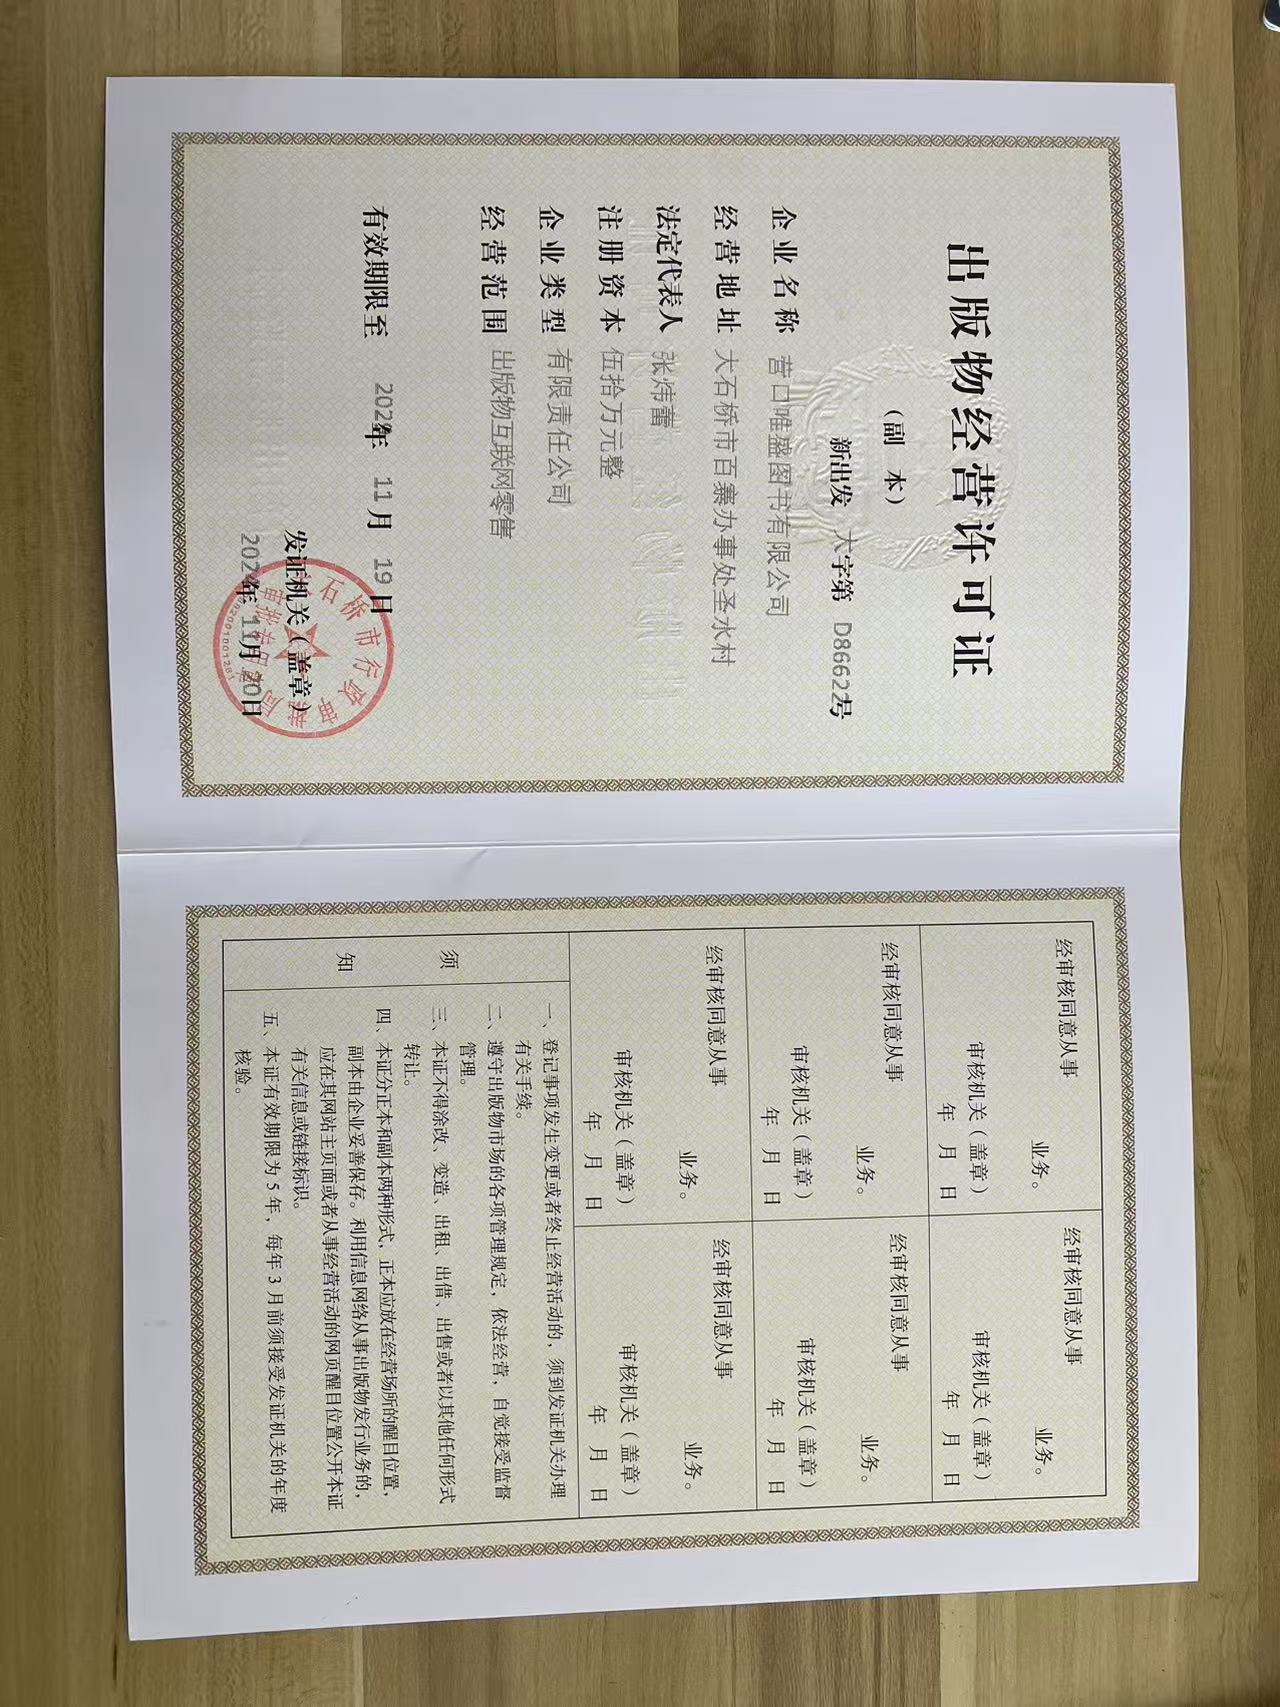 出版物经营许可证
（副 本）
新出发 大字第 D8662号
企业名称 营口唯盛图书有限公司
经营地址 大石桥市百寨办事处圣水村
法定代表人 张炜蕾
注册资本 伍拾万元整
企业类型 有限责任公司
经营范围 出版物互联网零售
有效期限至 2029年 11月 19日
发证机关（盖章）
2024年 11月 20日
经审核同意从事
业务。
审核机关（盖章）
年 月 日
经审核同意从事
业务。
审核机关（盖章）
年 月 日
经审核同意从事
业务。
审核机关（盖章）
年 月 日
经审核同意从事
业务。
审核机关（盖章）
年 月 日
经审核同意从事
业务。
审核机关（盖章）
年 月 日
经审核同意从事
业务。
审核机关（盖章）
年 月 日
须
知
一、登记事项发生变更或者终止经营活动的，须到发证机关办理
有关手续。
二、遵守出版物市场的各项管理规定，依法经营，自觉接受监督
管理。
三、本证不得涂改、变造、出租、出借、出售或者以其他任何形式
转让。
四、本证分正本和副本两种形式，正本应放在经营场所的醒目位置，
副本由企业妥善保存。利用信息网络从事出版物发行业务的，
应在其网站主页面或者从事经营活动的网页醒目位置公开本证
有关信息或链接标识。
五、本证有效期限为 5 年，每年 3 月前须接受发证机关的年度
核验。